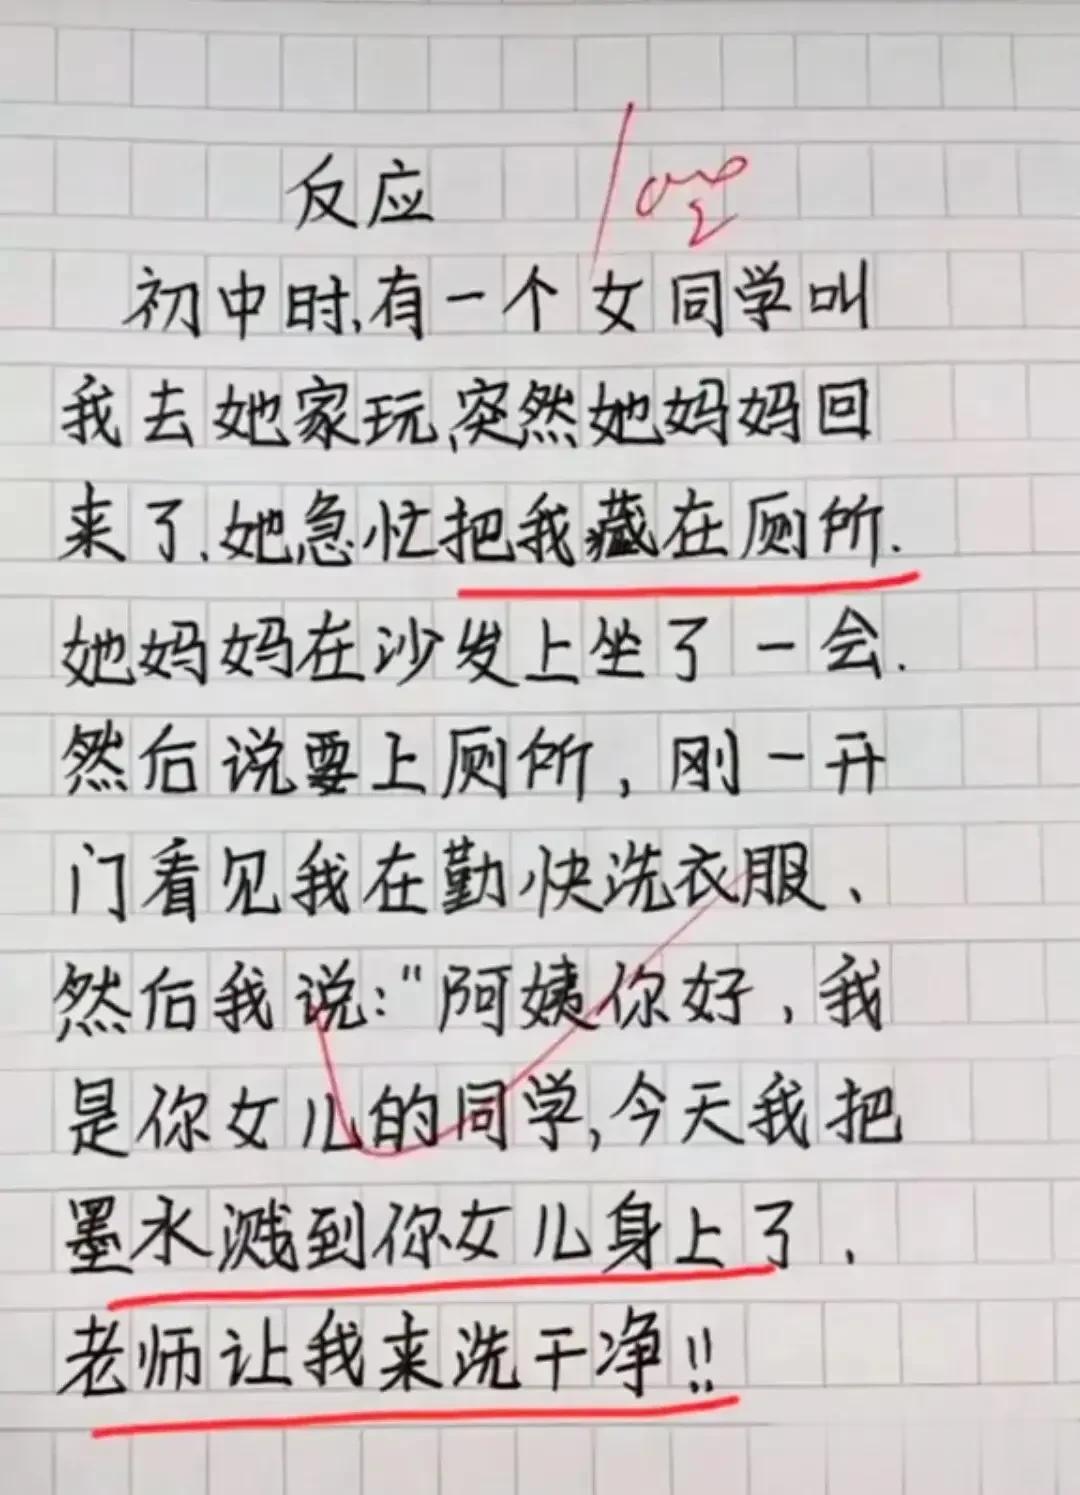 反应
初中时,有一个女同学叫
我去她家玩,突然她妈妈回
来了.她急忙把我藏在厕所.
她妈妈在沙发上坐了一会.
然后说要上厕所,刚一开
门看见我在勤快洗衣服、
然后我说:"阿姨你好,我
是你女儿的同学,今天我把
墨水溅到你女儿身上了.
老师让我来洗干净!!